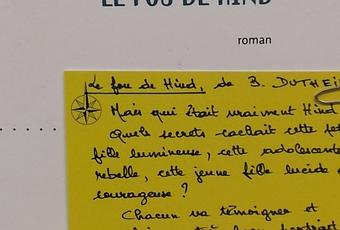 LE FOU DE HIND
roman
Le fou de Hind, de B. DUTHEI
Mais qui était vraiment Hind
Quels secrets cachait cette
fille lumineuse, cette adolescente
rebelle, cette jeune fille lucide
courageuse ?
Chacun va témoigner et